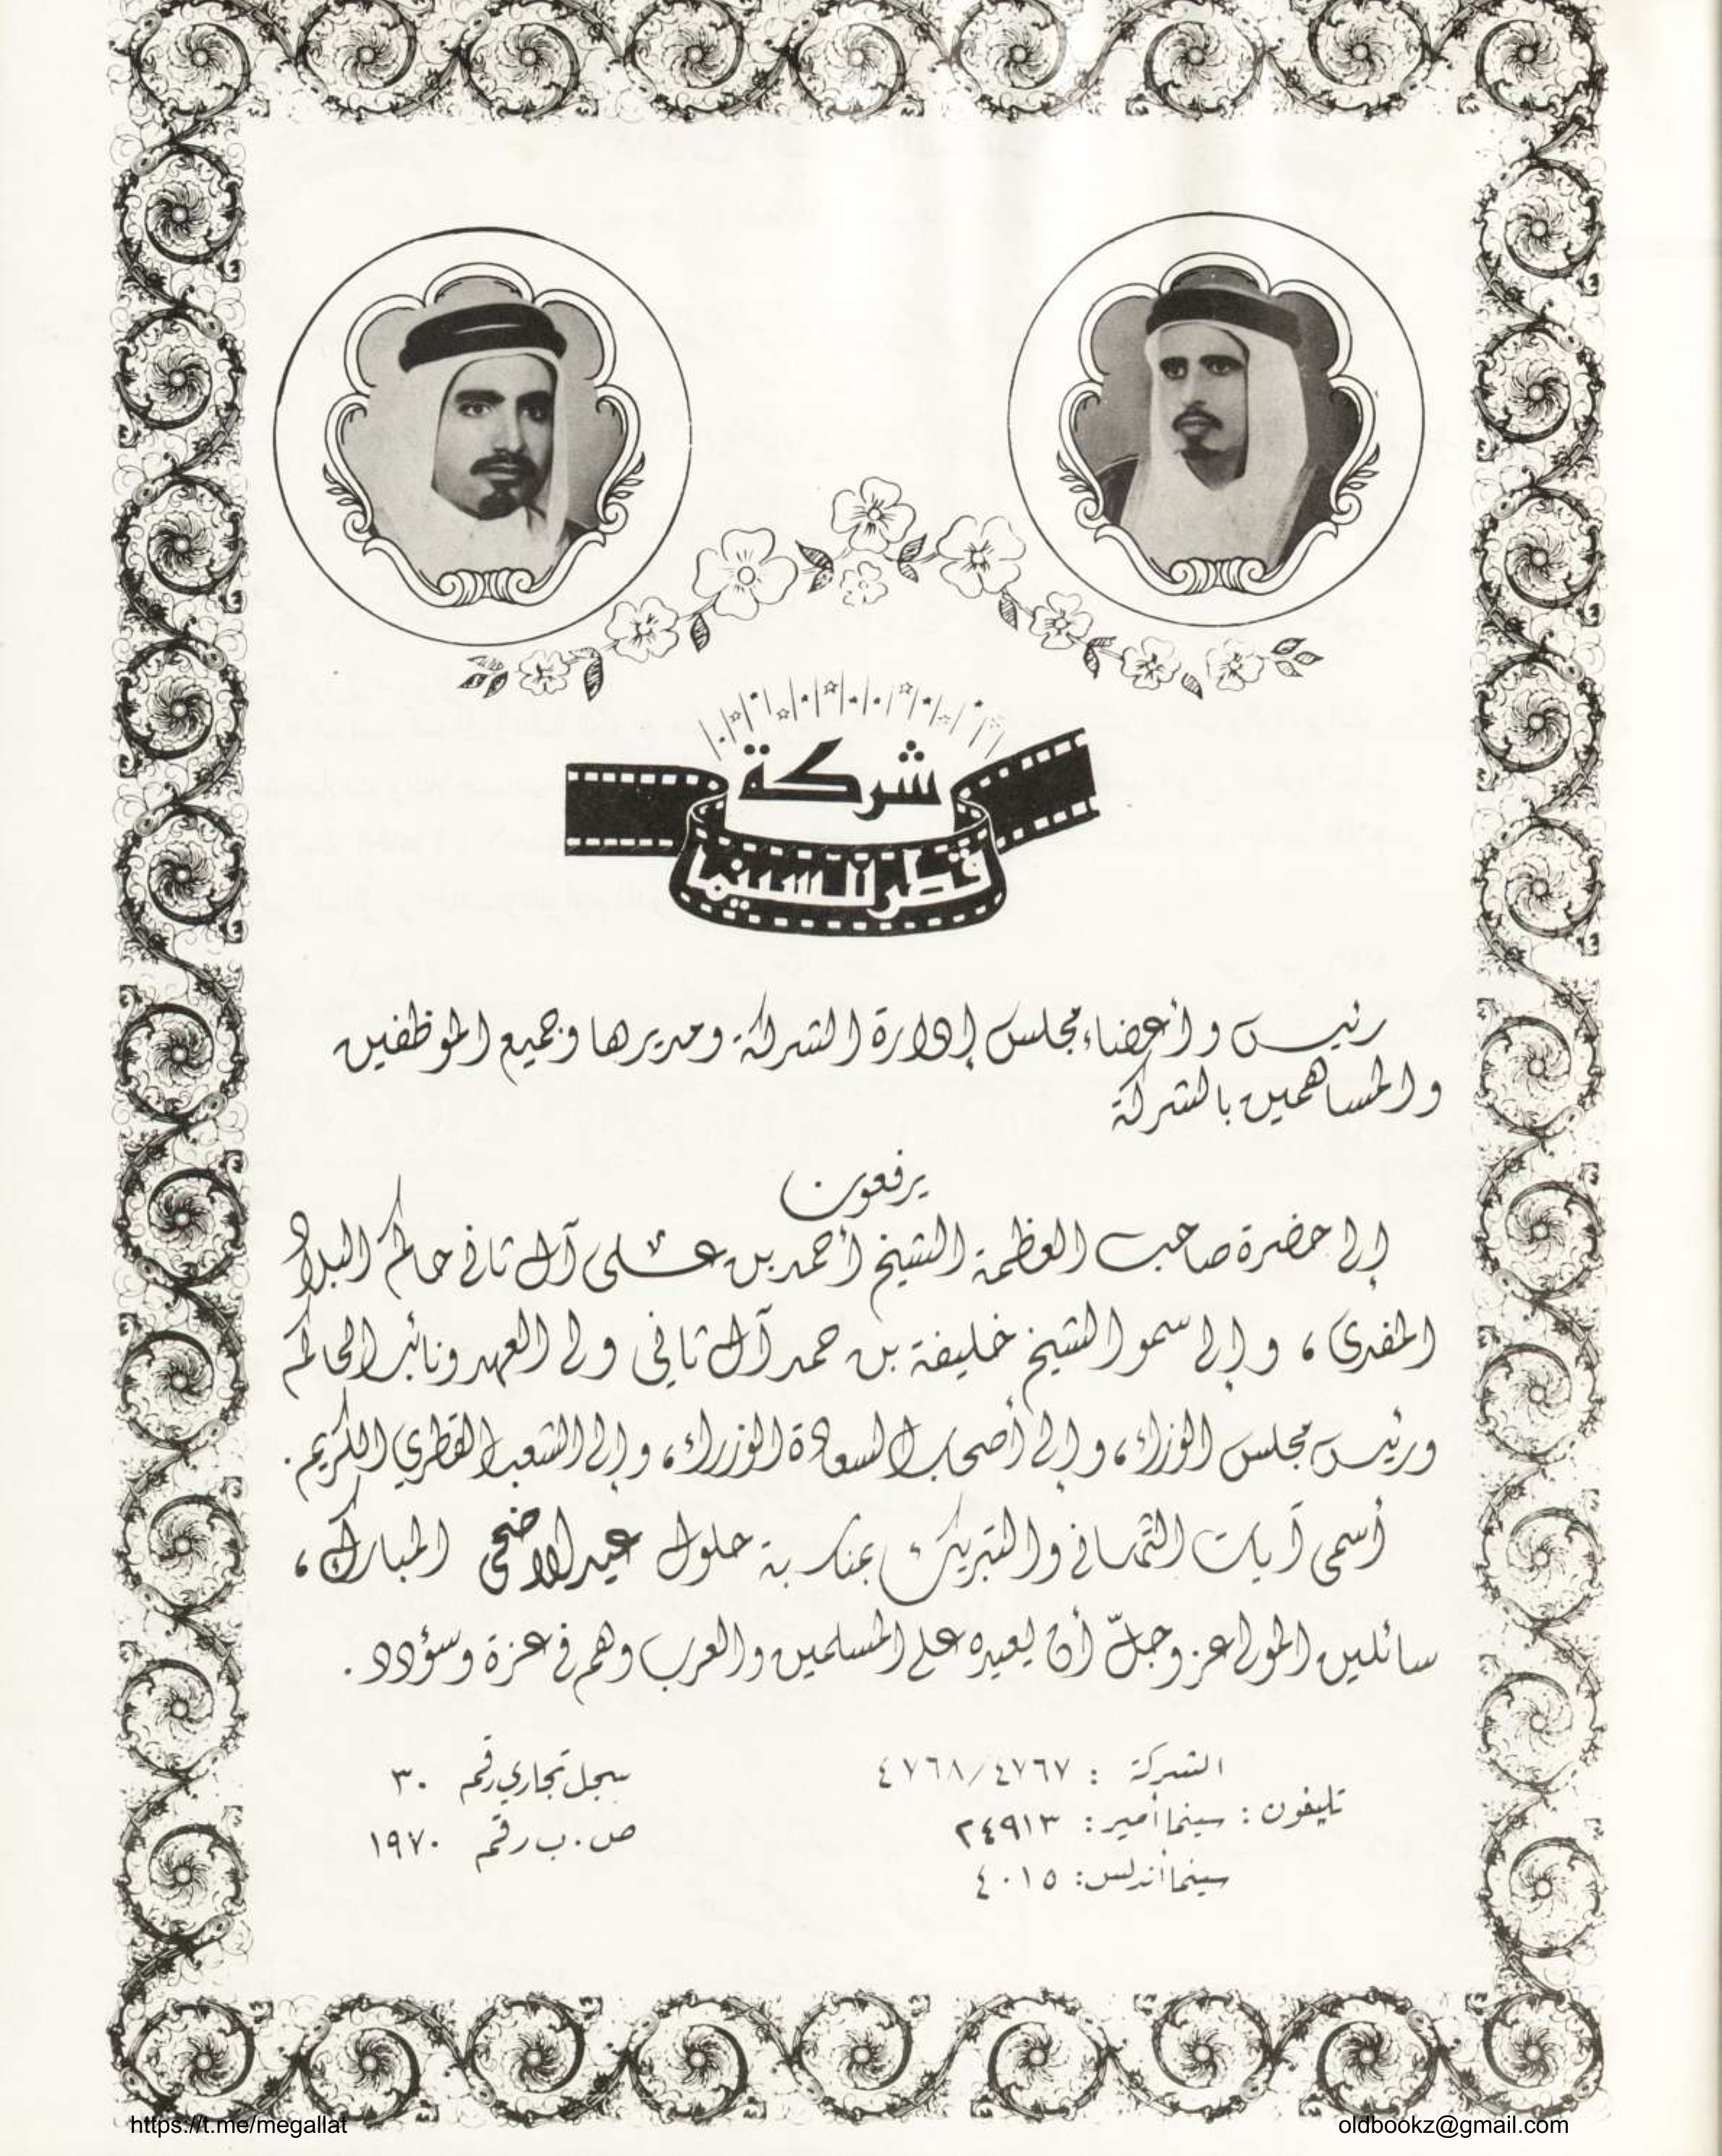 شركة
قطر للسينما
رئيس وأعضاء مجلس إدارة الشركة ومديرها وجميع الموظفين
والمساهمين بالشركة
يرفعون
إلى حضرة صاحب العظمة الشيخ أحمد بن علي آل ثاني حاكم البلاد
المفدى، وإلى سمو الشيخ خليفة بن حمد آل ثاني ولي العهد ونائب الحاكم
ورئيس مجلس الوزراء، وإلى أصحاب السعادة الوزراء، وإلى الشعب القطري الكريم.
أسمى آيات التهاني والتبريك بمناسبة حلول عيد الاضحى المبارك،
سائلين المولى عز وجلّ أن يعيده على المسلمين والعرب وهم في عزة وسؤدد.
تليفون: الشركة : ٤٧٦٧/٤٧٦٨
سينما أمير: ٢٤٩١٣
سينما أندلس: ٤٠١٥
سجل تجاري رقم ٣٠
ص.ب رقم ١٩٧٠
https://t.me/megallat
oldbookz@gmail.com